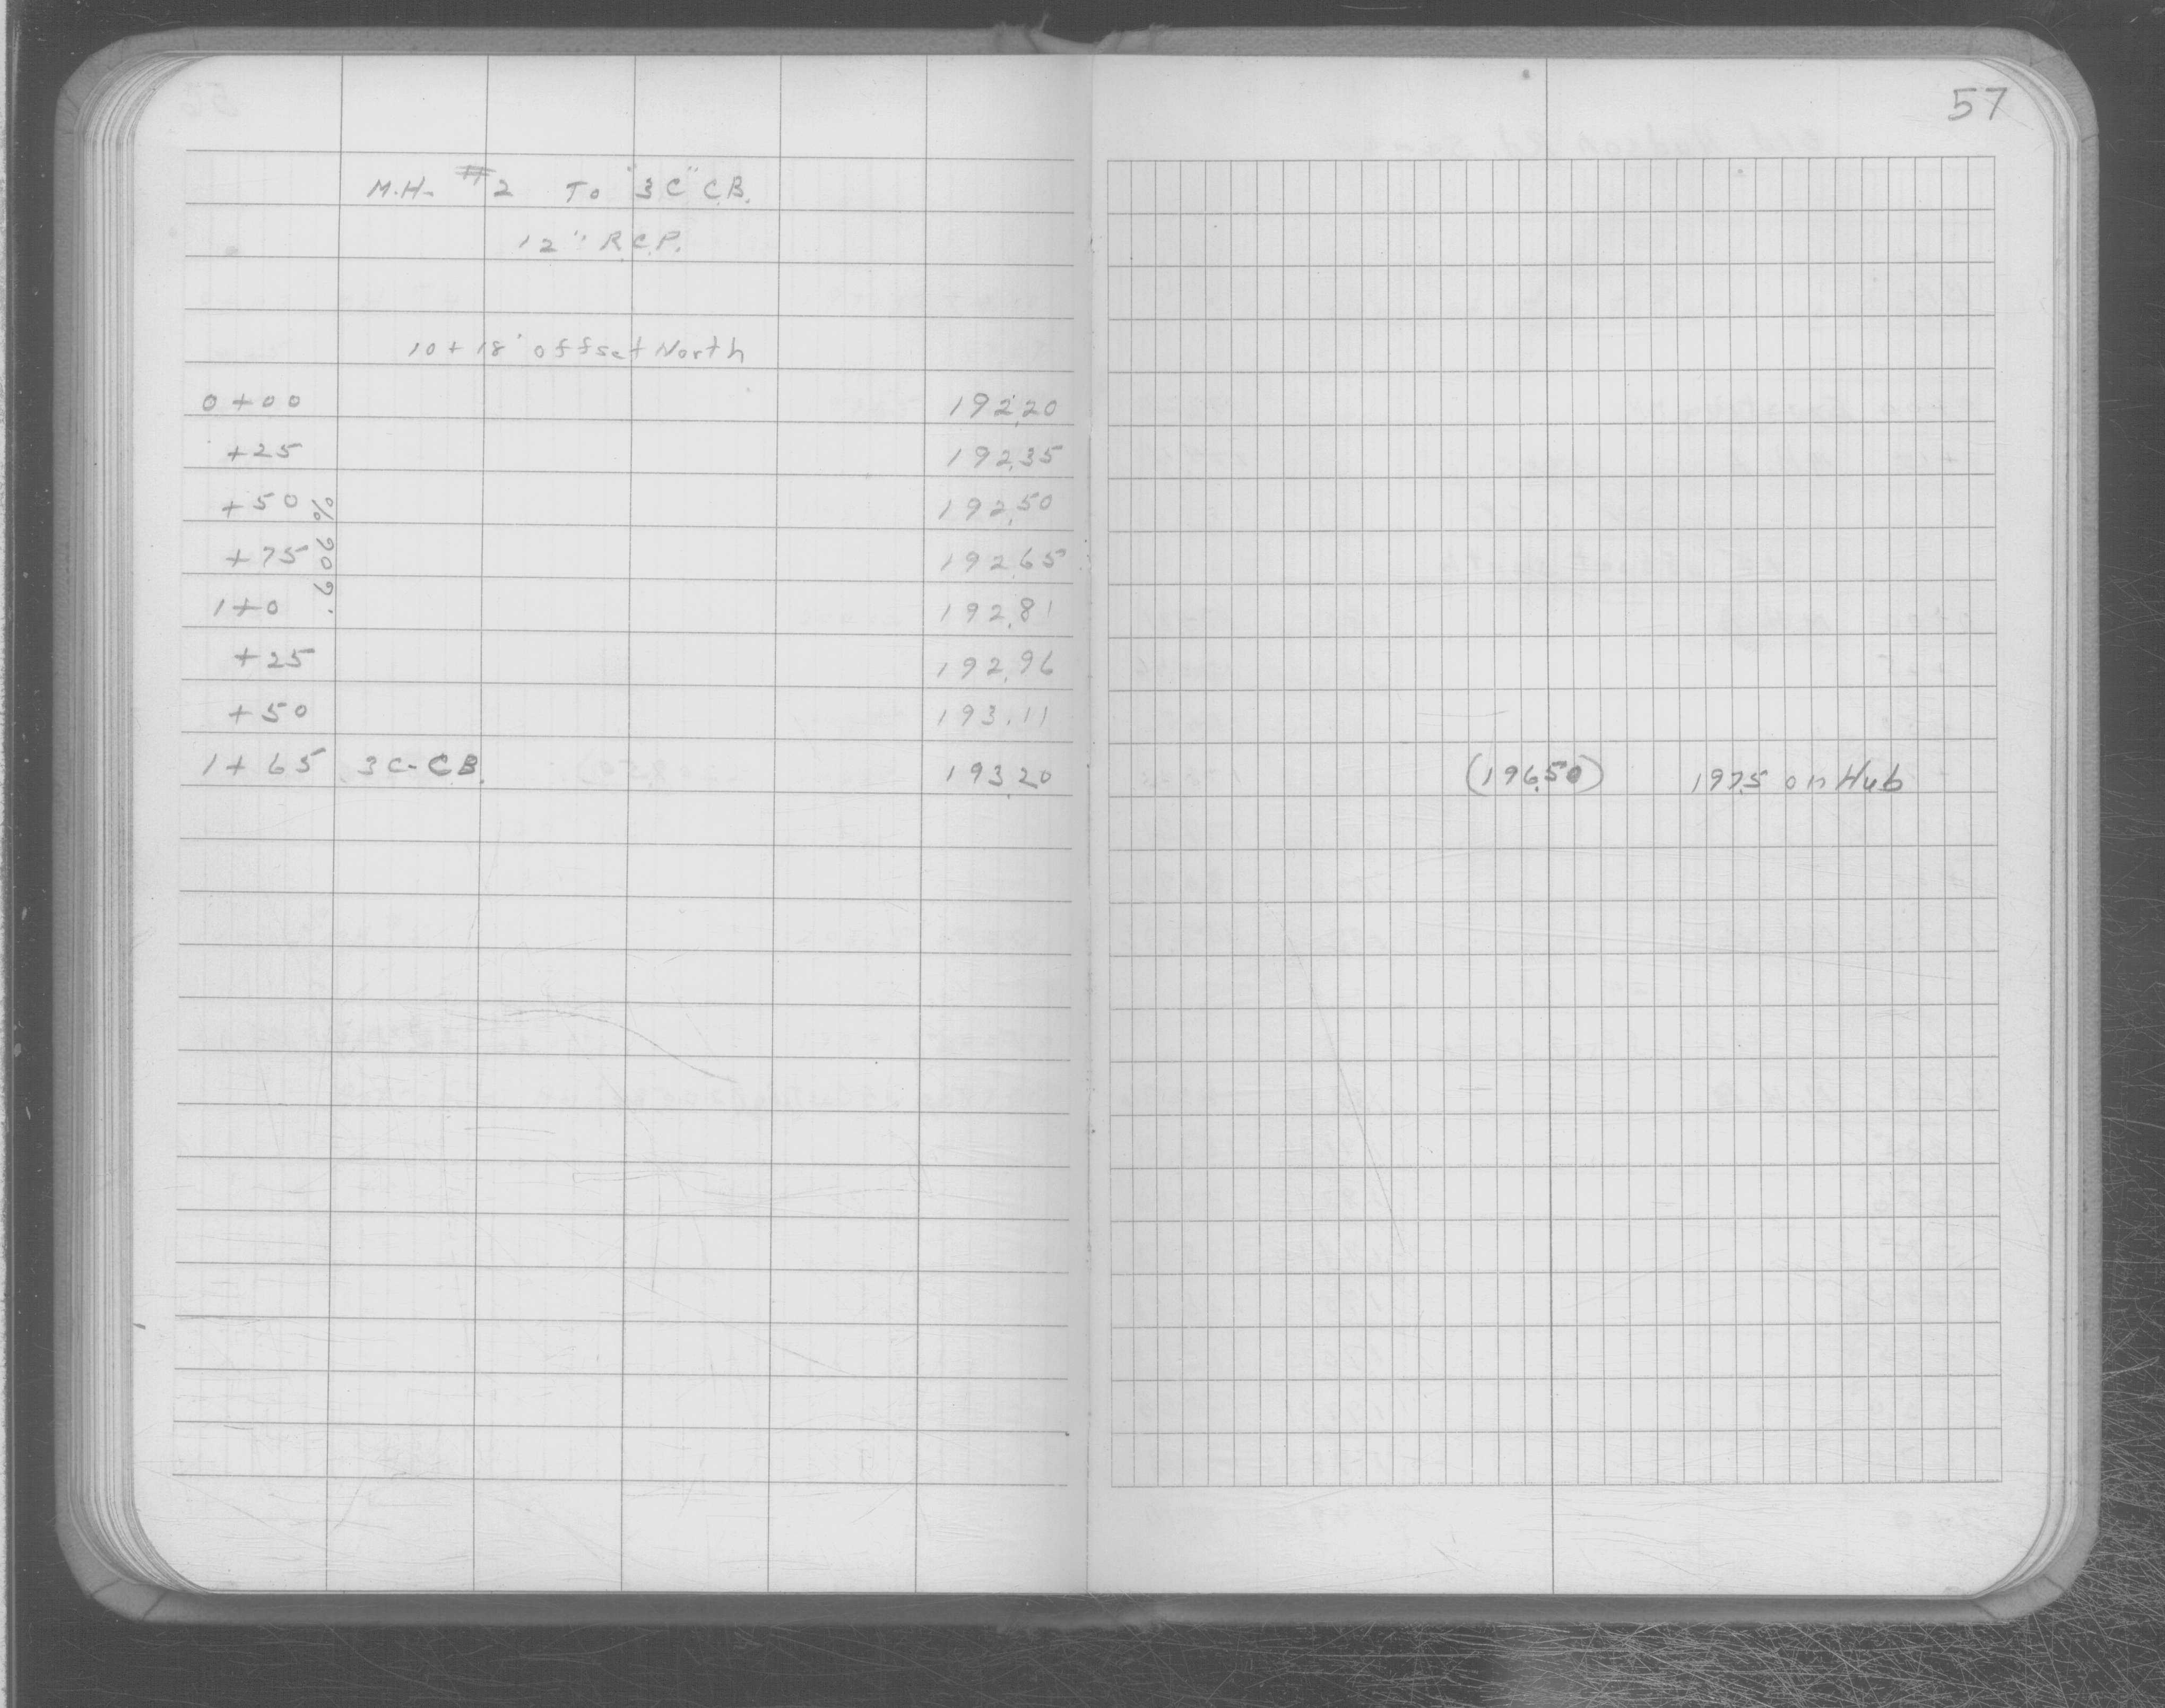 57
M.H- #2 To "3C" C.B.
12" R.C.P.
10 + 18' offset North
0+00 192.20
+25 192.35
+50 192.50
+75 192.65
1+0 192.81
+25 192.96
+50 193.11
1+65 3C-CB. 193.20 (196.50) 197.5 on Hub
.609%